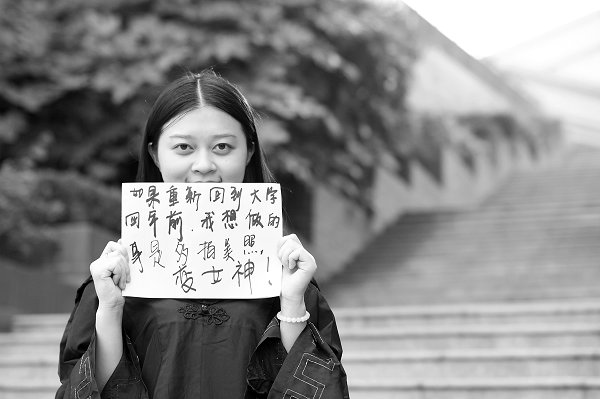 如果重新回到大学
四年前，我想做的
是多拍美照
女神！